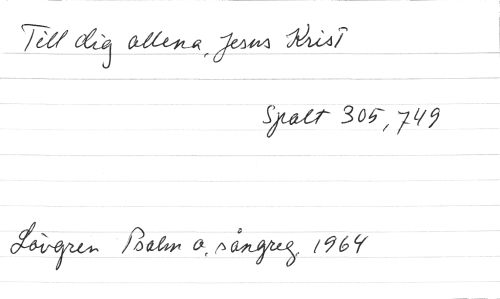 Till dig allena, Jesus Krist
Spalt 305, 749
Lövgren Psalm o. sångreg. 1964